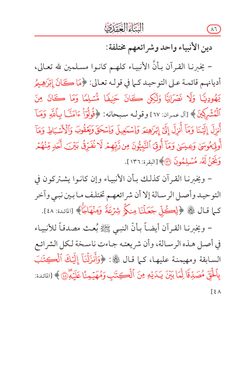 ٨٦ البناء العقدي
دين الأنبياء واحد وشرائعهم مختلفة:
– يخبرنا القرآن بأنَّ الأنبياء كلهم كانوا مسلمين لله تعالى،
أديانهم قائمة على التوحيد كما في قوله تعالى: ﴿مَا كَانَ إِبْرَاهِيمُ
يَهُودِيًّا وَلَا نَصْرَانِيًّا وَلَٰكِن كَانَ حَنِيفًا مُّسْلِمًا وَمَا كَانَ مِنَ
الْمُشْرِكِينَ﴾ [آل عمران: ٦٧] وقوله سبحانه: ﴿قُولُوا آمَنَّا بِاللَّهِ وَمَا
أُنزِلَ إِلَيْنَا وَمَا أُنزِلَ إِلَىٰ إِبْرَاهِيمَ وَإِسْمَاعِيلَ وَإِسْحَاقَ وَيَعْقُوبَ وَالْأَسْبَاطِ وَمَا
أُوتِيَ مُوسَىٰ وَعِيسَىٰ وَمَا أُوتِيَ النَّبِيُّونَ مِن رَّبِّهِمْ لَا نُفَرِّقُ بَيْنَ أَحَدٍ مِّنْهُمْ
وَنَحْنُ لَهُ مُسْلِمُونَ ١٣٦﴾ [البقرة: ١٣٦].
– ويخبرنا القرآن كذلك بأن الأنبياء وإن كانوا يشتركون في
التوحيد وأصل الرسالة إلا أن شرائعهم تختلف ما بين نبي وآخر
كما قال ﷻ: ﴿لِكُلٍّ جَعَلْنَا مِنكُمْ شِرْعَةً وَمِنْهَاجًا﴾ [المائدة: ٤٨].
– ويخبرنا القرآن أيضاً بأنَّ النبي ﷺ بُعث مصدقاً للأنبياء
في أصل هذه الرسالة، وأن شريعته جاءت ناسخة لكل الشرائع
السابقة ومهيمنة عليها، كما قال ﷻ: ﴿وَأَنزَلْنَا إِلَيْكَ الْكِتَابَ
بِالْحَقِّ مُصَدِّقًا لِّمَا بَيْنَ يَدَيْهِ مِنَ الْكِتَابِ وَمُهَيْمِنًا عَلَيْهِ﴾ [المائدة:
٤٨]